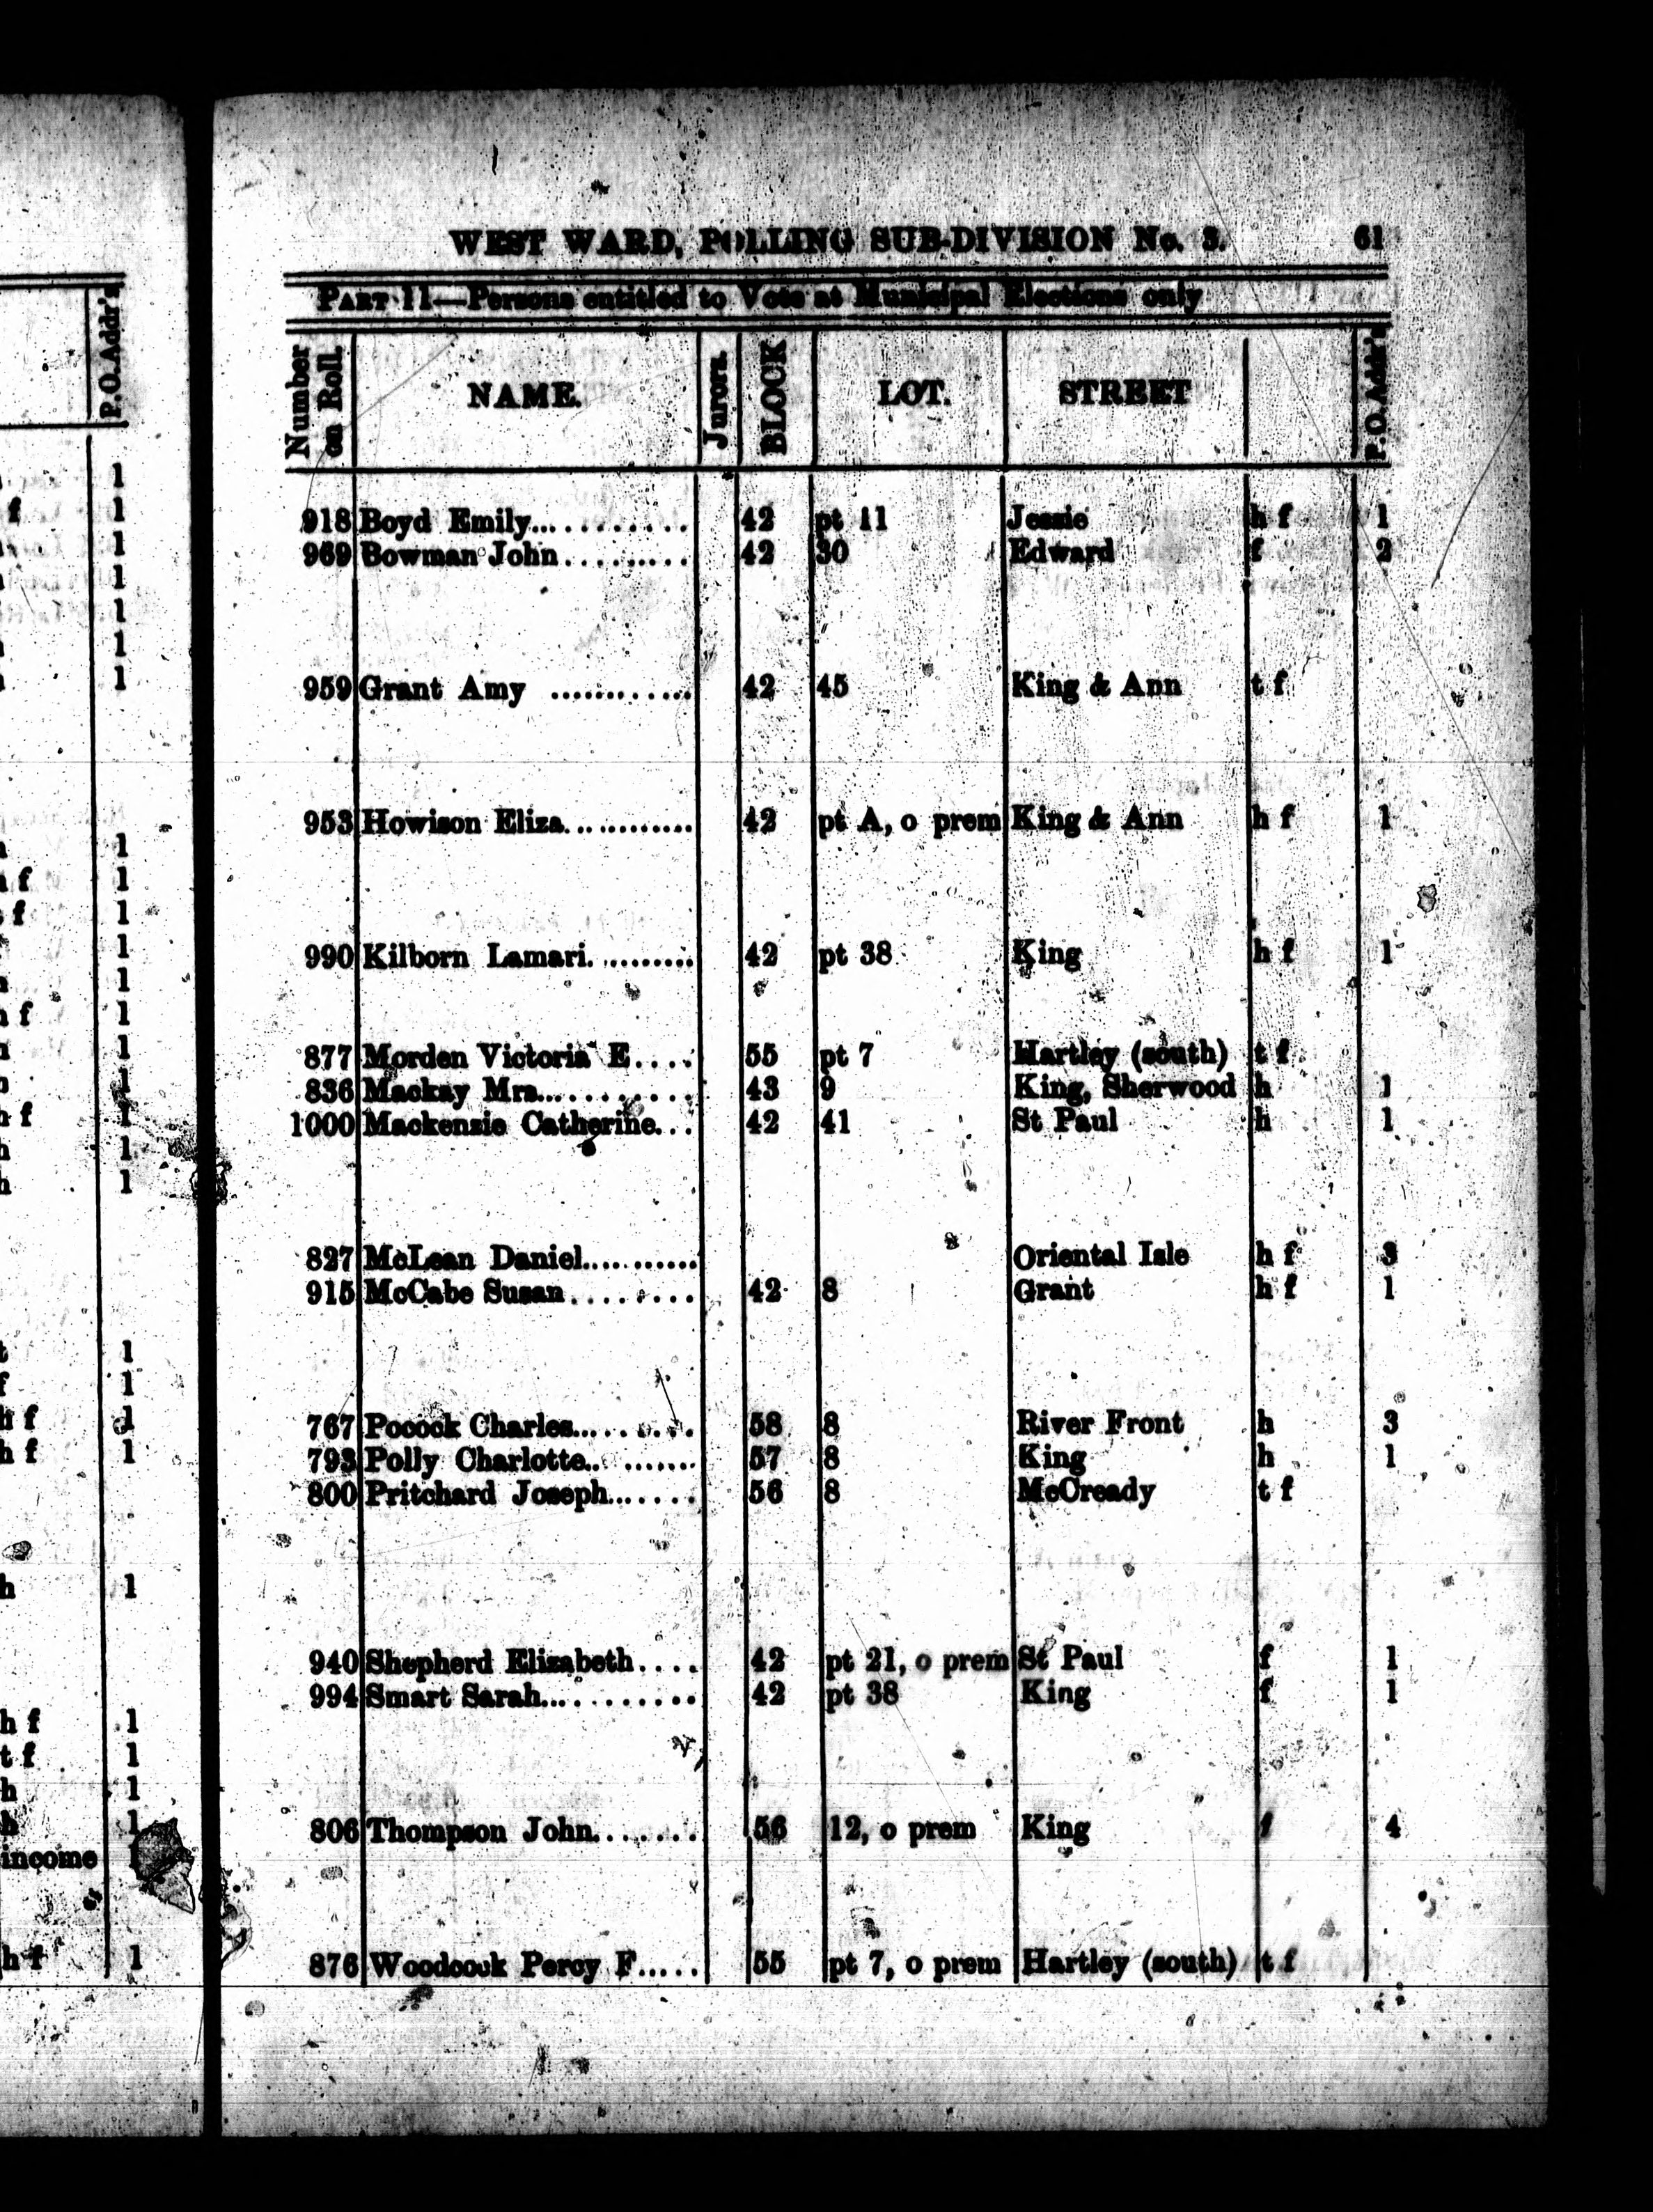 WEST WARD, POLLING SUB-DIVISION No. 3. 61
PART II—Persons entitled to Vote at Municipal Elections only
Number on Roll. NAME. Jurors. BLOCK LOT. STREET P.O.Addr's
918 Boyd Emily............ 42 pt 11 Jessie h f 1
969 Bowman John......... 42 30 Edward f 2
959 Grant Amy ............ 42 45 King & Ann t f
953 Howison Eliza............ 42 pt A, o prem King & Ann h f 1
990 Kilborn Lamari.......... 42 pt 38 King h f 1
877 Morden Victoria E.... 55 pt 7 Hartley (south) t f
836 Mackay Mrs........... 43 9 King, Sherwood h 1
1000 Mackenzie Catherine... 42 41 St Paul h 1
827 McLean Daniel........... Oriental Isle h f 3
915 McCabe Susan......... 42 8 Grant h f 1
767 Pocock Charles......... 58 8 River Front h 3
793 Polly Charlotte.......... 57 8 King h 1
800 Pritchard Joseph....... 56 8 McCready t f
940 Shepherd Elizabeth.... 42 pt 21, o prem St Paul f 1
994 Smart Sarah............ 42 pt 38 King f 1
806 Thompson John........ 56 12, o prem King f 4
876 Woodcock Percy F..... 55 pt 7, o prem Hartley (south) t f
P.O.Addr's
1
f 1
1
1
1
1
1
1
f 1
f 1
1
1
f 1
1
1
f 1
h 1
h 1
t 1
f 1
h f 1
h f 1
h 1
h f 1
t f 1
h 1
h 1
income 1
h f 1